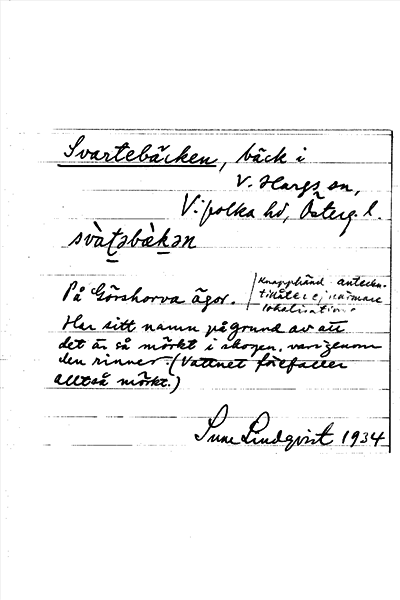 Svartebäcken, bäck i
V. Hargs sn,
Vifolka hd, Österg. l.
svàt̠əbæ̀k̠ən
På Görshorva ägor.
Knapphänd anteckn.
tillåter ej närmare
lokalisation.
Har sitt namn på grund av att
det är så mörkt i skogen, varigenom
den rinner. (Vattnet förefaller
alltså mörkt.)
Sune Lindqvist 1934